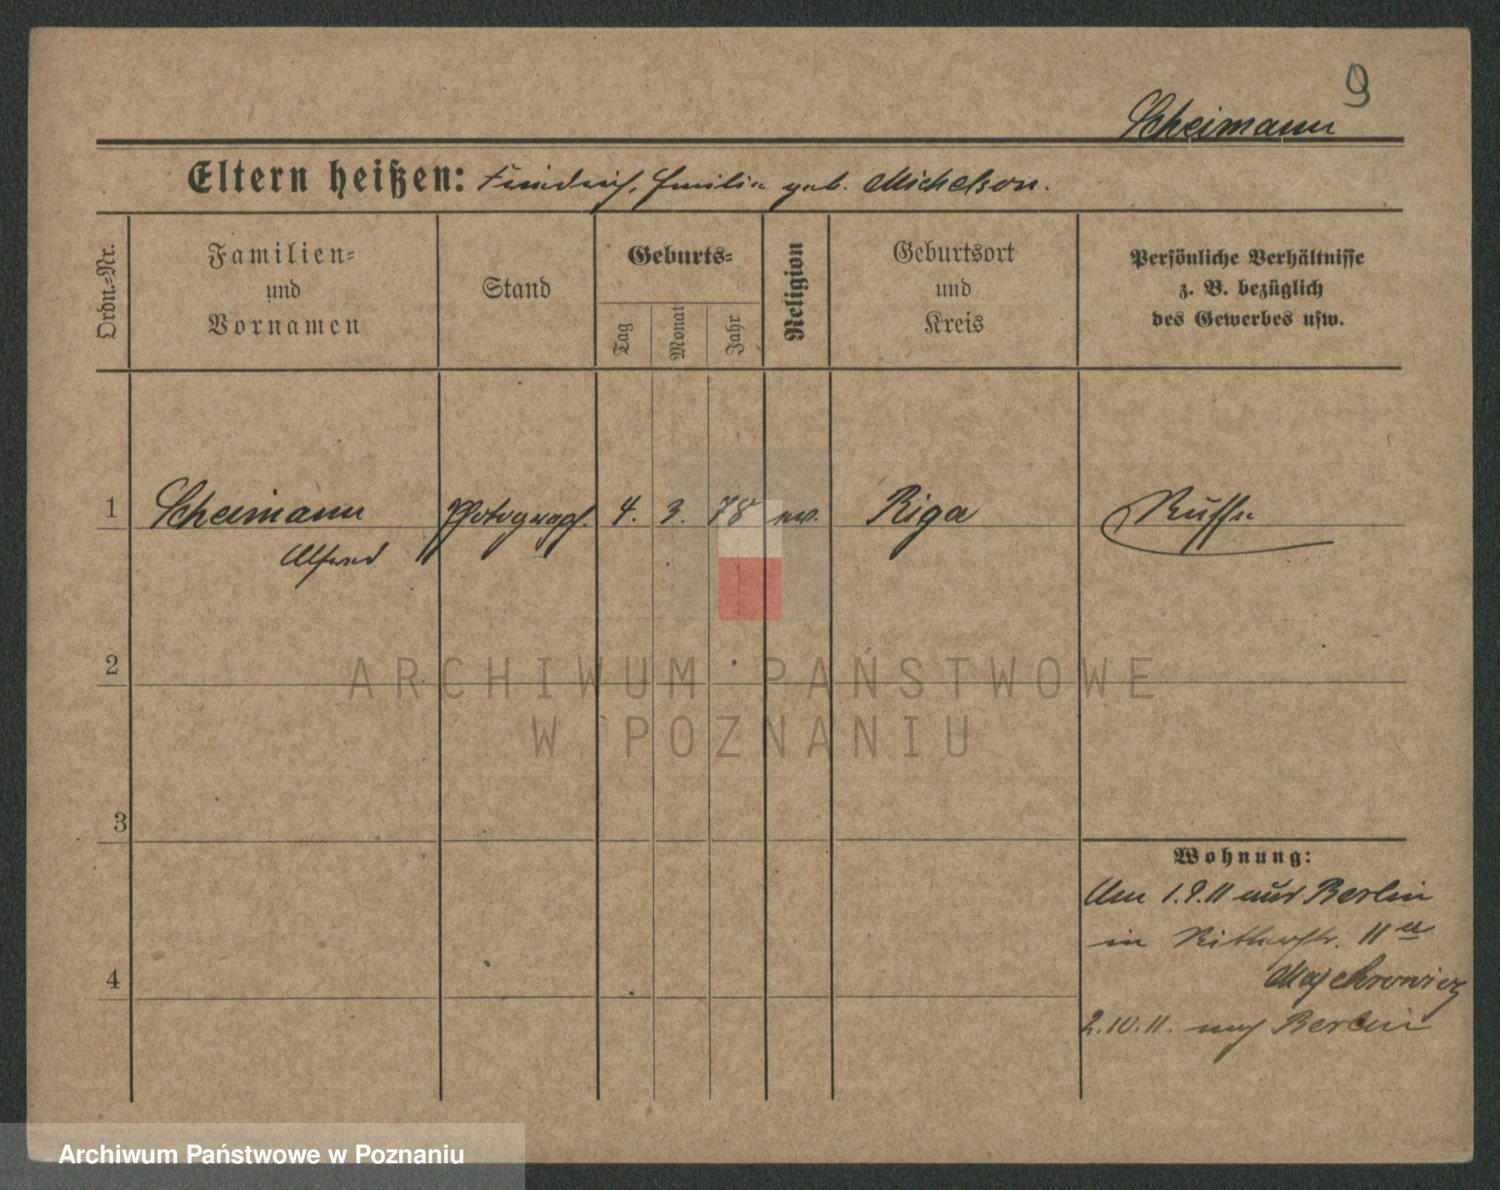 9
Scheimann
Eltern heißen: Friedrich, Emilie geb. Michelson.
Ordn.-Nr.
Familien-
und
Vornamen
Stand
Geburts-
Tag
Monat
Jahr
Religion
Geburtsort
und
Kreis
Persönliche Verhältnisse
z. B. bezüglich
des Gewerbes usw.
1 Scheimann Photograph. 4. 3. 78 ev. Riga Russe
Alfred
2
ARCHIWUM PAŃSTWOWE
W POZNANIU
3
Wohnung:
Am 1.9.11 aus Berlin
in Ritterstr. 11
Majchrowicz
4
2.10.11. nach Berlin
Archiwum Państwowe w Poznaniu